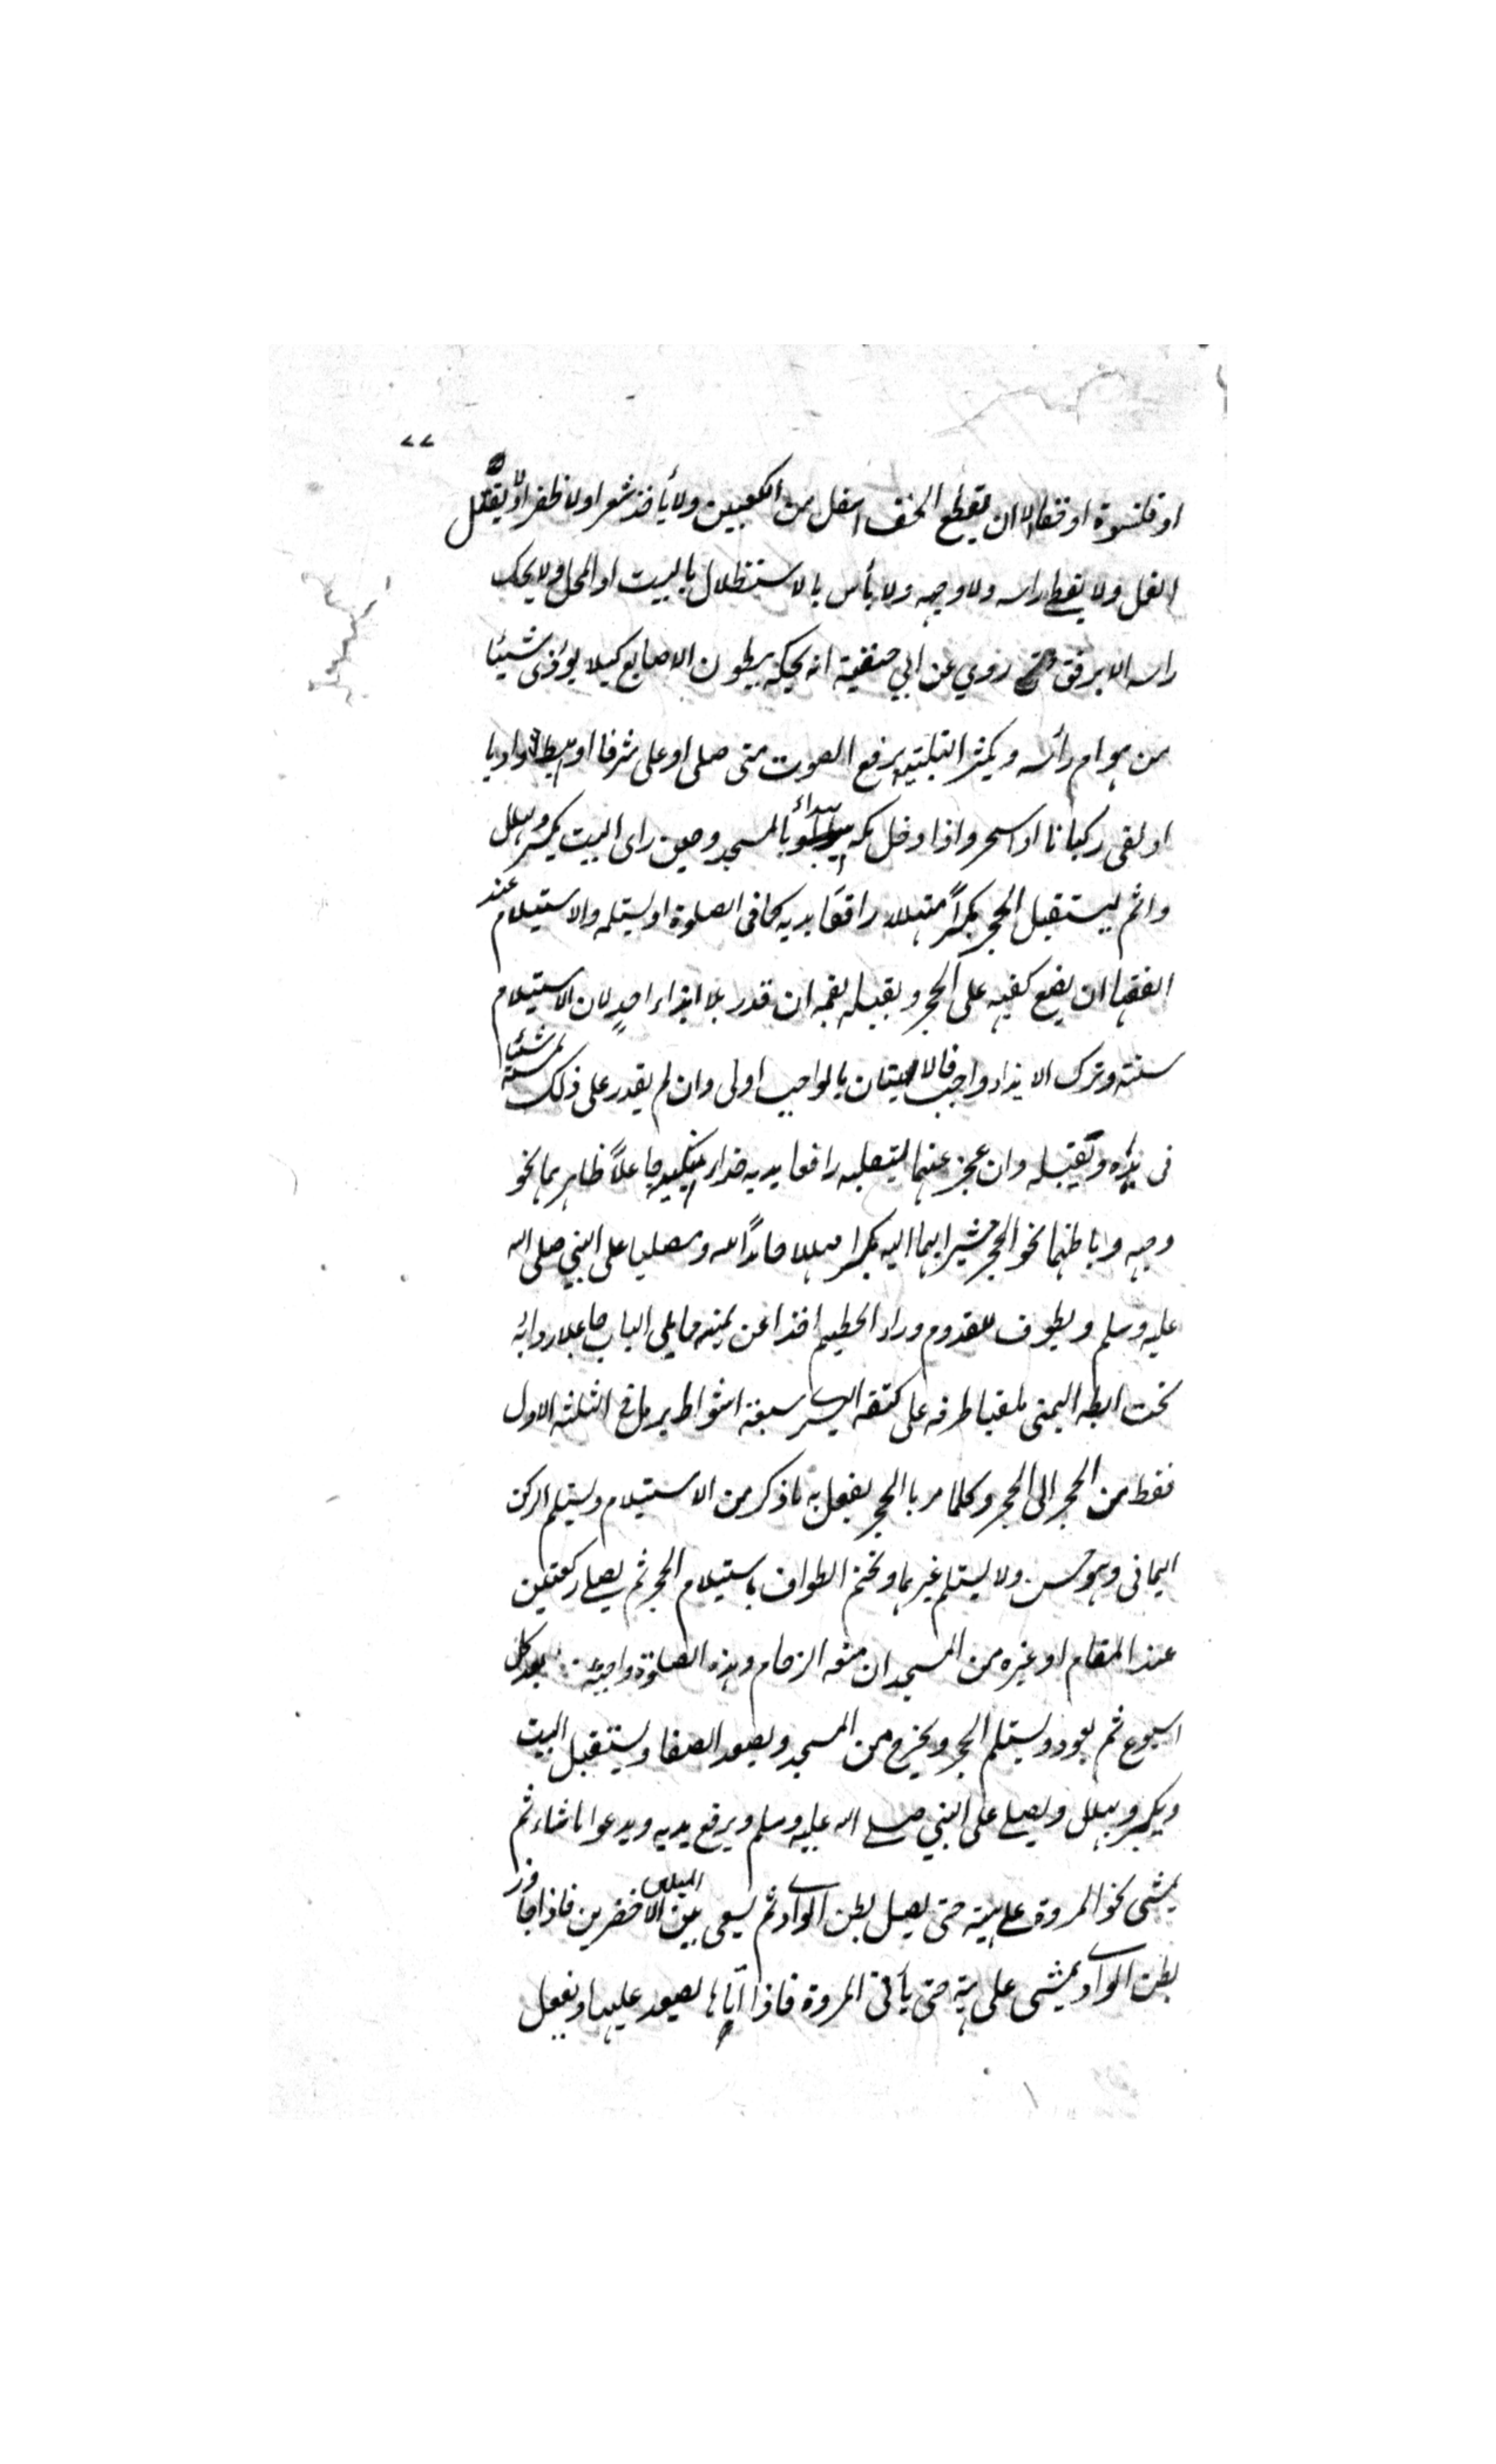 ٧٧
او قلنسوة او خفا الا ان يقطع الخف اسفل من الكعبين ولا يأخذ شعرا ولا ظفرا ولا يقتل
القمل ولا يغطى راسه ولا وجهه ولا بأس بالاستظلال بالبيت او المحل ولا يحك
راسه الا برفق روي عن ابي حنفية انه يحكه ببطون الاصابع كيلا يؤذى شيئا
من هوام رأسه ويكثر التلبية برفع الصوت متى صلى او على شرفا او هبط واديا
او لقى ركبانا او اسحر واذا دخل مكه ابتداء بالمسجد وحين راى البيت يكبر ويهلل
واثم ليستقبل الحجر مكبراً مهللا رافعا يديه كما فى الصلوة او ليستلمه والاستيلام عند
الفقها ان يضع كفيه على الحجر ويقبله بفمه ان قدر بلا ايذاء احدٍ لان الاستيلام
سنته وترك الايذاء واجب فالاتيان بالواجب اولى وان لم يقدر على ذلك لمسه شئيا
فى يده ويقبله وان عجز عنهما ليتقبله رافعا يديه حذاء منكبيه جاعلاً ظاهرهما نحو
وجهه وباطنهما نحو الحجر مشيرا بهما اليه مكبرا مهللا حامداً لله ومصليا على النبي صلى الله
عليه وسلم ويطوف للقدوم وراء الحطيم اخذا عن يمينه مما يلى الباب جاعلا ردائه
تحت ابطه اليمنى ملقيا طرفه على كتفه اليسرى سبعة اشواط يرمل فى الثلثه الاول
فقط من الحجر الى الحجر وكلما مر بالحجر يفعل به ما ذكر من الاستيلام ويستيلم الركن
اليمانى وهو حسن ولا يستلم غيرهما ويختم الطواف باستيلام الحجر ثم يصلى ركعتين
عند المقام او غيره من المسجد ان منعه الزحام وهذه الصلوة واجبة بعد كل
اسبوع ثم يعود ويستيلم الحجر ويخرج من المسجد ويصعد الصفا ويستقبل البيت
ويكبر ويهلل ويصلى على النبي صلى الله عليه وسلم ويرفع يديه ويدعوا ما شاء ثم
يمشى نحو المروة على هيته حتى يصل بطن الوادى ثم يسعى بين الميلين الاخضرين فاذا جاوز
بطن الوادى يمشى على هيته حتى يأتى المروة فاذا اتاها يصعد عليها ويفعل